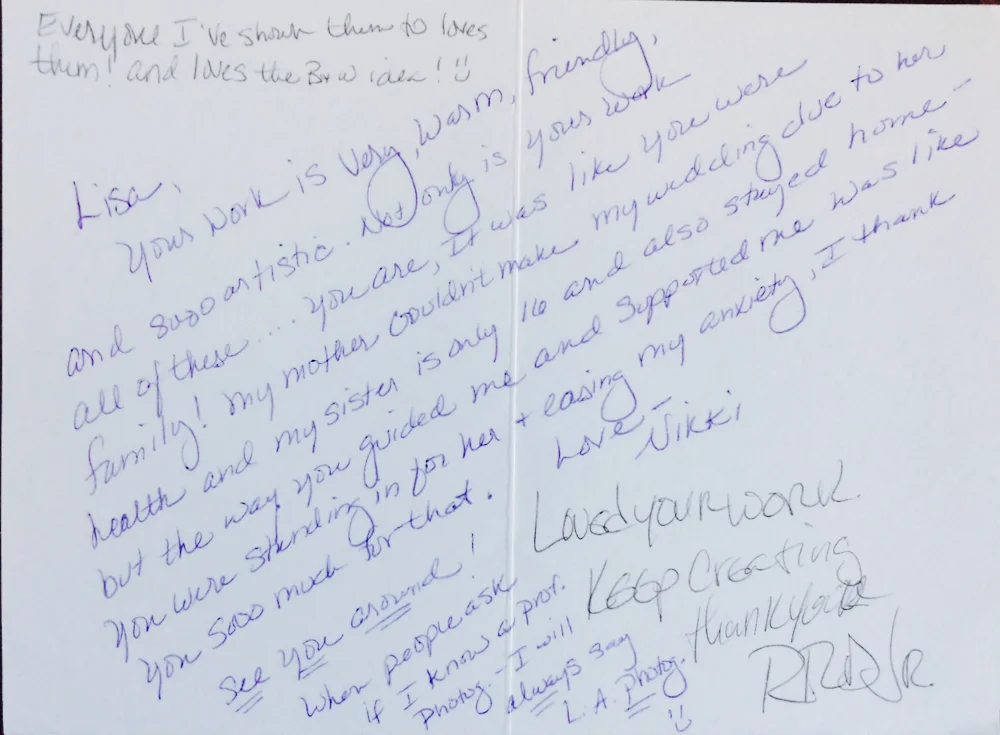 Everyone I've shown them to loves
them! and loves the B+W idea! :)
Lisa,
Your work is very, warm, friendly,
and sooo artistic. Not only is your work
all of these.... you are, It was like you were
family! My mother couldn't make my wedding due to her
health and my sister is only 16 and also stayed home-
but the way you guided me and supported me was like
you were standing in for her + easing my anxiety, I thank
you sooo much for that.
Love-
Nikki
see you around!
When people ask
if I know a prof.
photog. - I will
always say
L.A. Photog.
:)
Loved your work.
Keep Creating
thank you